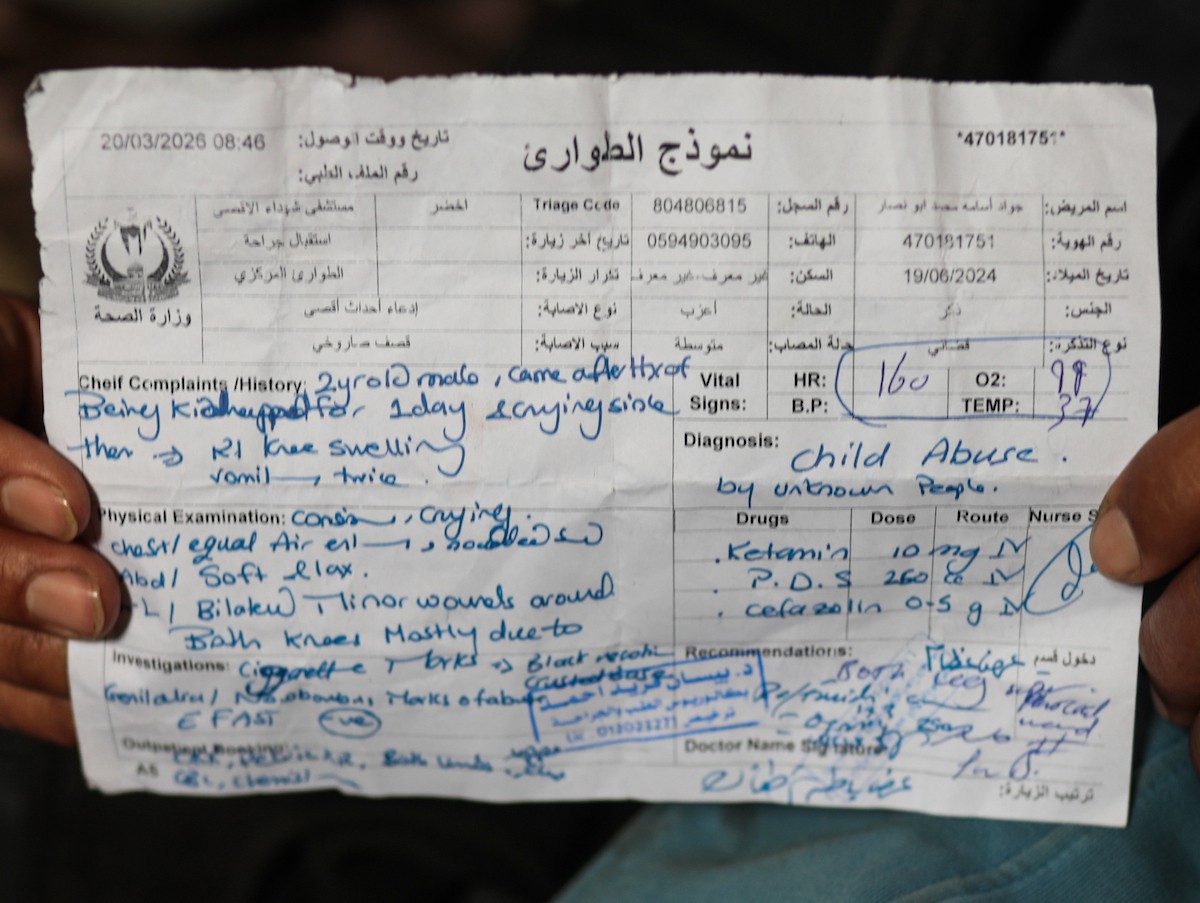 *470181751*
نموذج الطوارئ
تاريخ ووقت الوصول: 20/03/2026 08:46
رقم الملف الطبي:
اسم المريض: جواد أسامه محمد ابو نصار
رقم السجل: 804806815
Triage Code اخضر
مستشفى شهداء الاقصى
رقم الهوية: 470181751
الهاتف: 0594903095
تاريخ آخر زيارة:
استقبال جراحة
تاريخ الميلاد: 19/06/2024
السكن: غير معرف-غير معرف
تكرار الزيارة:
الطوارئ المركزي
الجنس: ذكر
الحالة: أعزب
نوع الاصابة: إدعاء أحداث أقصى
نوع التذكرة: قضائي
حالة المصاب: متوسطة
سبب الاصابة: قصف صاروخي
وزارة الصحة
Cheif Complaints /History: 2 yr old male, came after Hx of
Being Kidnapped for 1 day & crying since
then → Rt Knee swelling
vomit → twice.
Vital Signs: HR: 160 O2: 98
B.P: TEMP: 37
Diagnosis: Child Abuse.
by unknown People.
Physical Examination: , crying.
chest/ equal Air
Abd/ Soft & lax.
Minor wounds around
Both Knees Mostly due to
Investigations: Ciggarette Marks → Black
Marks of abuse
E FAST -ve
Drugs Dose Route Nurse S
. Ketamin 10 mg IV
. P.D.S 260 cc IV
. Cefazolin 0.5 g IV
Recommendations:
دخول قسم
Both Leg
د. بيسان فريد احمد
بكالوريوس الطب والجراحة
ترخيص
Outpatient Booking:
CBC, Chemist
Doctor Name Signature:
A5
ترتيب الزيارة: